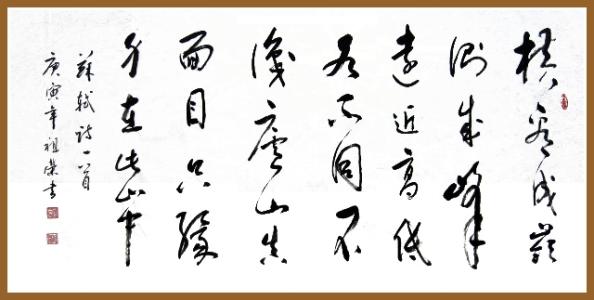 橫看成嶺
側成峰
遠近高低
各不同不
識廬山真
面目只緣
身在此山中
蘇軾詩一首
庚寅年祖榮書